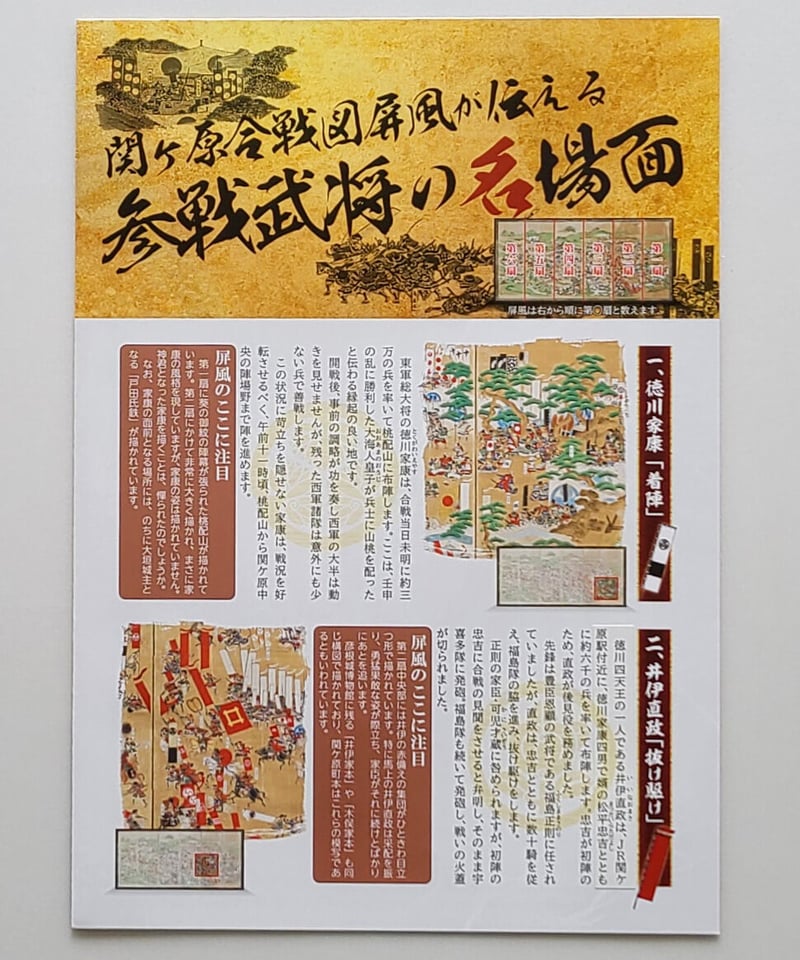 関ケ原合戦図屏風が伝える
参戦武将の名場面
第一扇
第二扇
第三扇
第四扇
第五扇
第六扇
屏風は右から順に第〇扇と数えます
一、徳川家康「着陣」
東軍総大将の徳川家康は、合戦当日未明に約三
万の兵を率いて桃配山に布陣します。ここは、壬申
の乱に勝利した大海人皇子が兵士に山桃を配った
と伝わる縁起の良い地です。
開戦後、事前の調略が功を奏し西軍の大半は動
きを見せませんが、残った西軍諸隊は意外にも少
ない兵で善戦します。
この状況に苛立ちを隠せない家康は、戦況を好
転させるべく、午前十一時頃、桃配山から関ケ原中
央の陣場野まで陣を進めます。
屏風のここに注目
第一扇に葵の御紋の陣幕が張られた桃配山が描かれて
います。第二扇にかけて非常に大きく描かれ、まさに家
康の風格を現していますが、家康の姿は描かれていません。
神君となった家康を描くことは、憚られたのでしょうか。
なお、家康の面前となる場所には、のちに大垣城主と
なる「戸田氏鉄」が描かれています。
二、井伊直政「抜け駆け」
徳川四天王の一人である井伊直政は、JR関ケ
原駅付近に、徳川家康四男で婿の松平忠吉ととも
に約六千の兵を率いて布陣します。忠吉が初陣の
ため、直政が後見役を務めました。
先鋒は豊臣恩顧の武将である福島正則に任され
ていましたが、直政は、忠吉とともに数十騎を従
え、福島隊の脇を進み、抜け駆けをします。
正則の家臣・可児才蔵に咎められますが、初陣の
忠吉に合戦の見聞をさせると弁明し、そのまま宇
喜多隊に発砲。福島隊も続いて発砲し、戦いの火蓋
が切られました。
屏風のここに注目
第二扇中央部には井伊の赤備えの集団がひときわ目立
つ形で描かれています。特に馬上の井伊直政は采配を振
り、勇猛果敢な姿が際立ち、家臣がそれに続けとばかり
にあとを追います。
彦根城博物館に残る「井伊家本」や「木俣家本」も同
じ構図で描かれており、関ケ原町本はこれらの模写であ
るともいわれています。